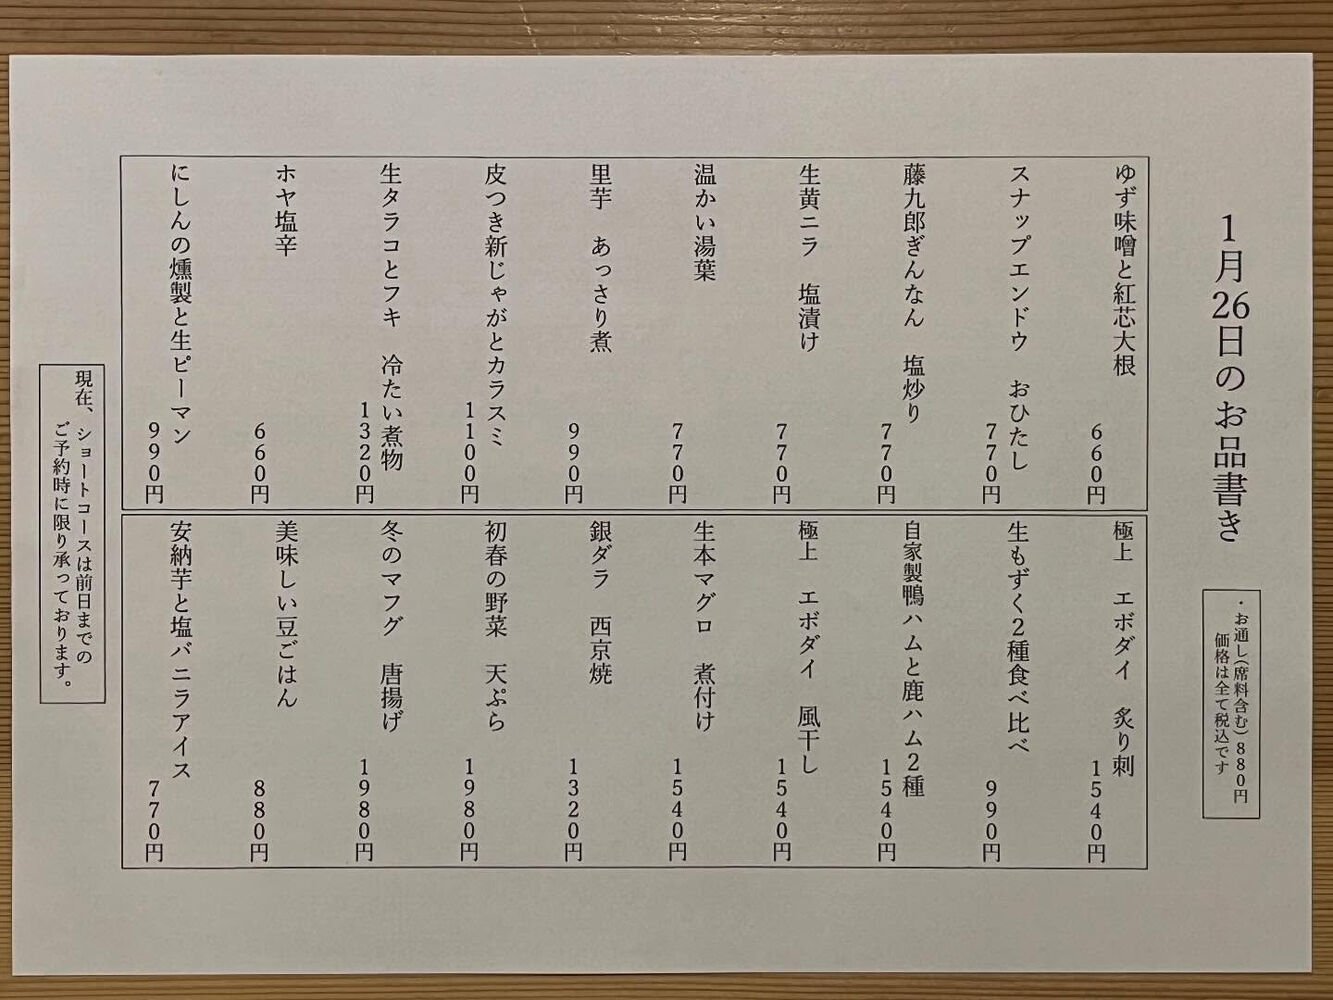 1月26日のお品書き
・お通し(席料含む)880円
価格は全て税込です
ゆず味噌と紅芯大根
660円
スナップエンドウ おひたし
770円
藤九郎ぎんなん 塩炒り
770円
生黄ニラ 塩漬け
770円
温かい湯葉
770円
里芋 あっさり煮
990円
皮つき新じゃがとカラスミ
1100円
生タラコとフキ 冷たい煮物
1320円
ホヤ塩辛
660円
にしんの燻製と生ピーマン
990円
極上 エボダイ 炙り刺
1540円
生もずく2種食べ比べ
990円
自家製鴨ハムと鹿ハム2種
1540円
極上 エボダイ 風干し
1540円
生本マグロ 煮付け
1540円
銀ダラ 西京焼
1320円
初春の野菜 天ぷら
1980円
冬のマフグ 唐揚げ
1980円
美味しい豆ごはん
880円
安納芋と塩バニラアイス
770円
現在、ショートコースは前日までの
ご予約時に限り承っております。